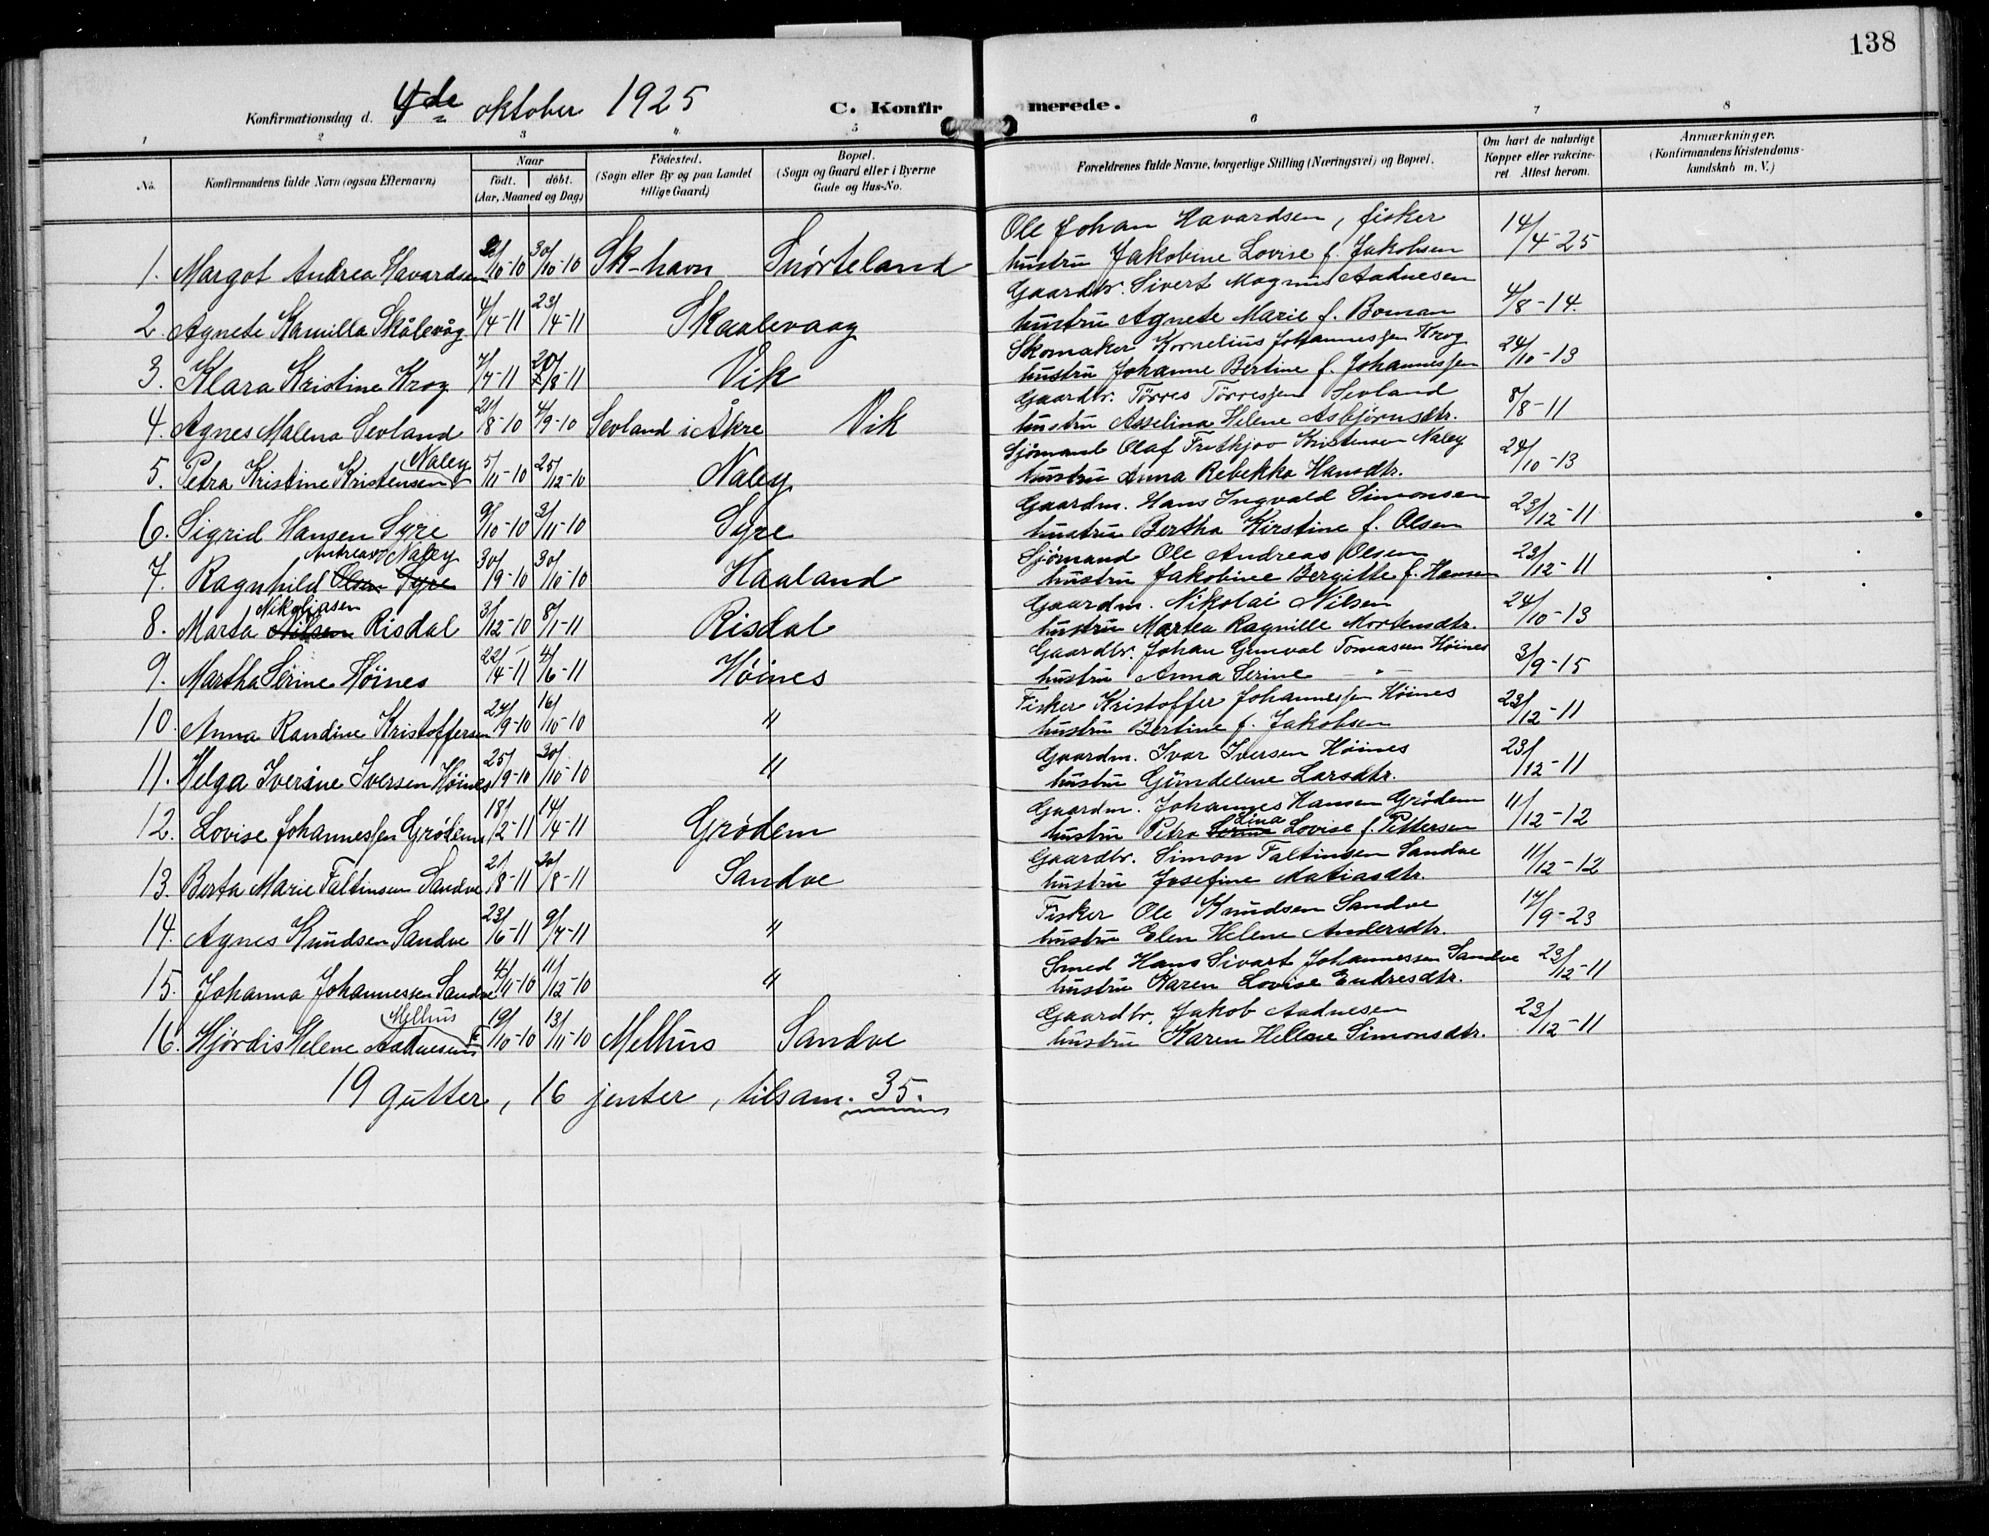 138
Konfirmationsdag d. 4de oktober 1925 C. Konfirmerede.
1 2 3 4 5 6 7 8
No. Konfirmandens fulde Navn (ogsaa Efternavn)
Naar
født. døbt.
(Aar, Maaned og Dag)
Fødested.
(Sogn eller By og paa Landet
tillige Gaard)
Bopæl.
(Sogn og Gaard eller i Byerne
Gade og Hus-No.
Forældrenes fulde Navne, borgerlige Stilling (Næringsvei) og Bopæl.
Om havt de naturlige
Kopper eller vakcine-
ret Attest herom.
Anmærkninger.
(Konfirmandens Kristendoms-
kundskab m. V.)
Ole Johan Havardsen, fisker 14/4-25
1. Margot Andrea Havardsen /10-10 30/10-10 Sk-havn Snørteland hustru Jakobine Lovise f. Jakobsen
Gaardbr. Sivert Magnus Aadnesen
2. Agnete Kamilla Skålevåg 4/4-11 23/4-11 Skaalevaag hustru Agnete Marie f. Boman 4/8-14.
Skomaker Kornelius Johannessen Krog
3. Klara Kristine Krog 7/7-11 20/8-11 Vik hustru Johanne Bertine f. Johannessen 24/10-13
Gaardbr. Tørres Tørressen Sevland
4. Agnes Malena Sevland 21/8-10 4/9-10 Sevland i Åkre Vik hustru Asselina Helene Asbjørnsdtr. 8/8-11
Sjømand Olaf Fritkjov Kristensen Naley
5. Petra Kristine Kristensen Naley 5/11-10 25/12-10 Naley hustru Anna Rebekka Hansdtr. 24/10-13
Gaardm. Hans Ingvald Simonsen
6. Sigrid Hansen Syre 9/10-10 3/11-10 Syre hustru Bertha Kirstine f. Olsen 23/12-11
Andreas Naley
Sjømand Ole Andreas Olsen
7. Ragnhild Olsen Syre 30/9-10 30/10-10 Haaland hustru Jakobine Bergitte f. Hansen 23/12-11
Nikolaisen
Gaardm. Nikolai Nilsen
8. Marta Nilsen Risdal 3/12-10 8/1-11 Risdal hustru Martha Ragnille Mortensdtr. 24/10-13
Gaardbr. Johan Gunval Tomassen Høines
9. Martha Serine Høines 22/4-11 4/6-11 Høines hustru Anna Serine — " — 3/9-15
Fisker Kristoffer Johannessen Høines
10. Anna Randine Kristoffersen 24/9-10 16/10-10 " hustru Bertine f. Jakobsen 23/12-11
Gaardm. Ivar Iversen Høines
11. Helga Iverine Iversen Høines 25/9-10 30/10-10 " hustru Gundelene Larsdtr. 23/12-11
Gaardm. Johannes Hansen Grødem
12. Lovise Johannessen Grødem 18/2-11 14/4-11 Grødem hustru Petra Serine Lina Lovise f. Pettersen 11/12-12
Gaardbr. Simon Faltinsen Sandve
13. Berta Marie Faltinsen Sandve 21/8-11 20/8-11 Sandve hustru Josefine Matiasdtr. 11/12-12
Fisker Ole Knudsen Sandve
14. Agnes Knudsen Sandve 23/6-11 9/7-11 " hustru Elen Helene Andersdtr. 17/9-23
Smed Hans Sivart Johannessen Sandve
15. Johanna Johannessen Sandve /11-10 11/12-10 " hustru Karen Lovise Endresdtr. 23/12-11
Melhus
Gaardbr. Jakob Aadnesen
16. Hjørdis Helene Aadnesen 19/10-10 13/11-10 Melhus Sandve hustru Karen Hellene Simonsdtr. 23/12-11
19 gutter, 16 jenter, tilsam. 35.